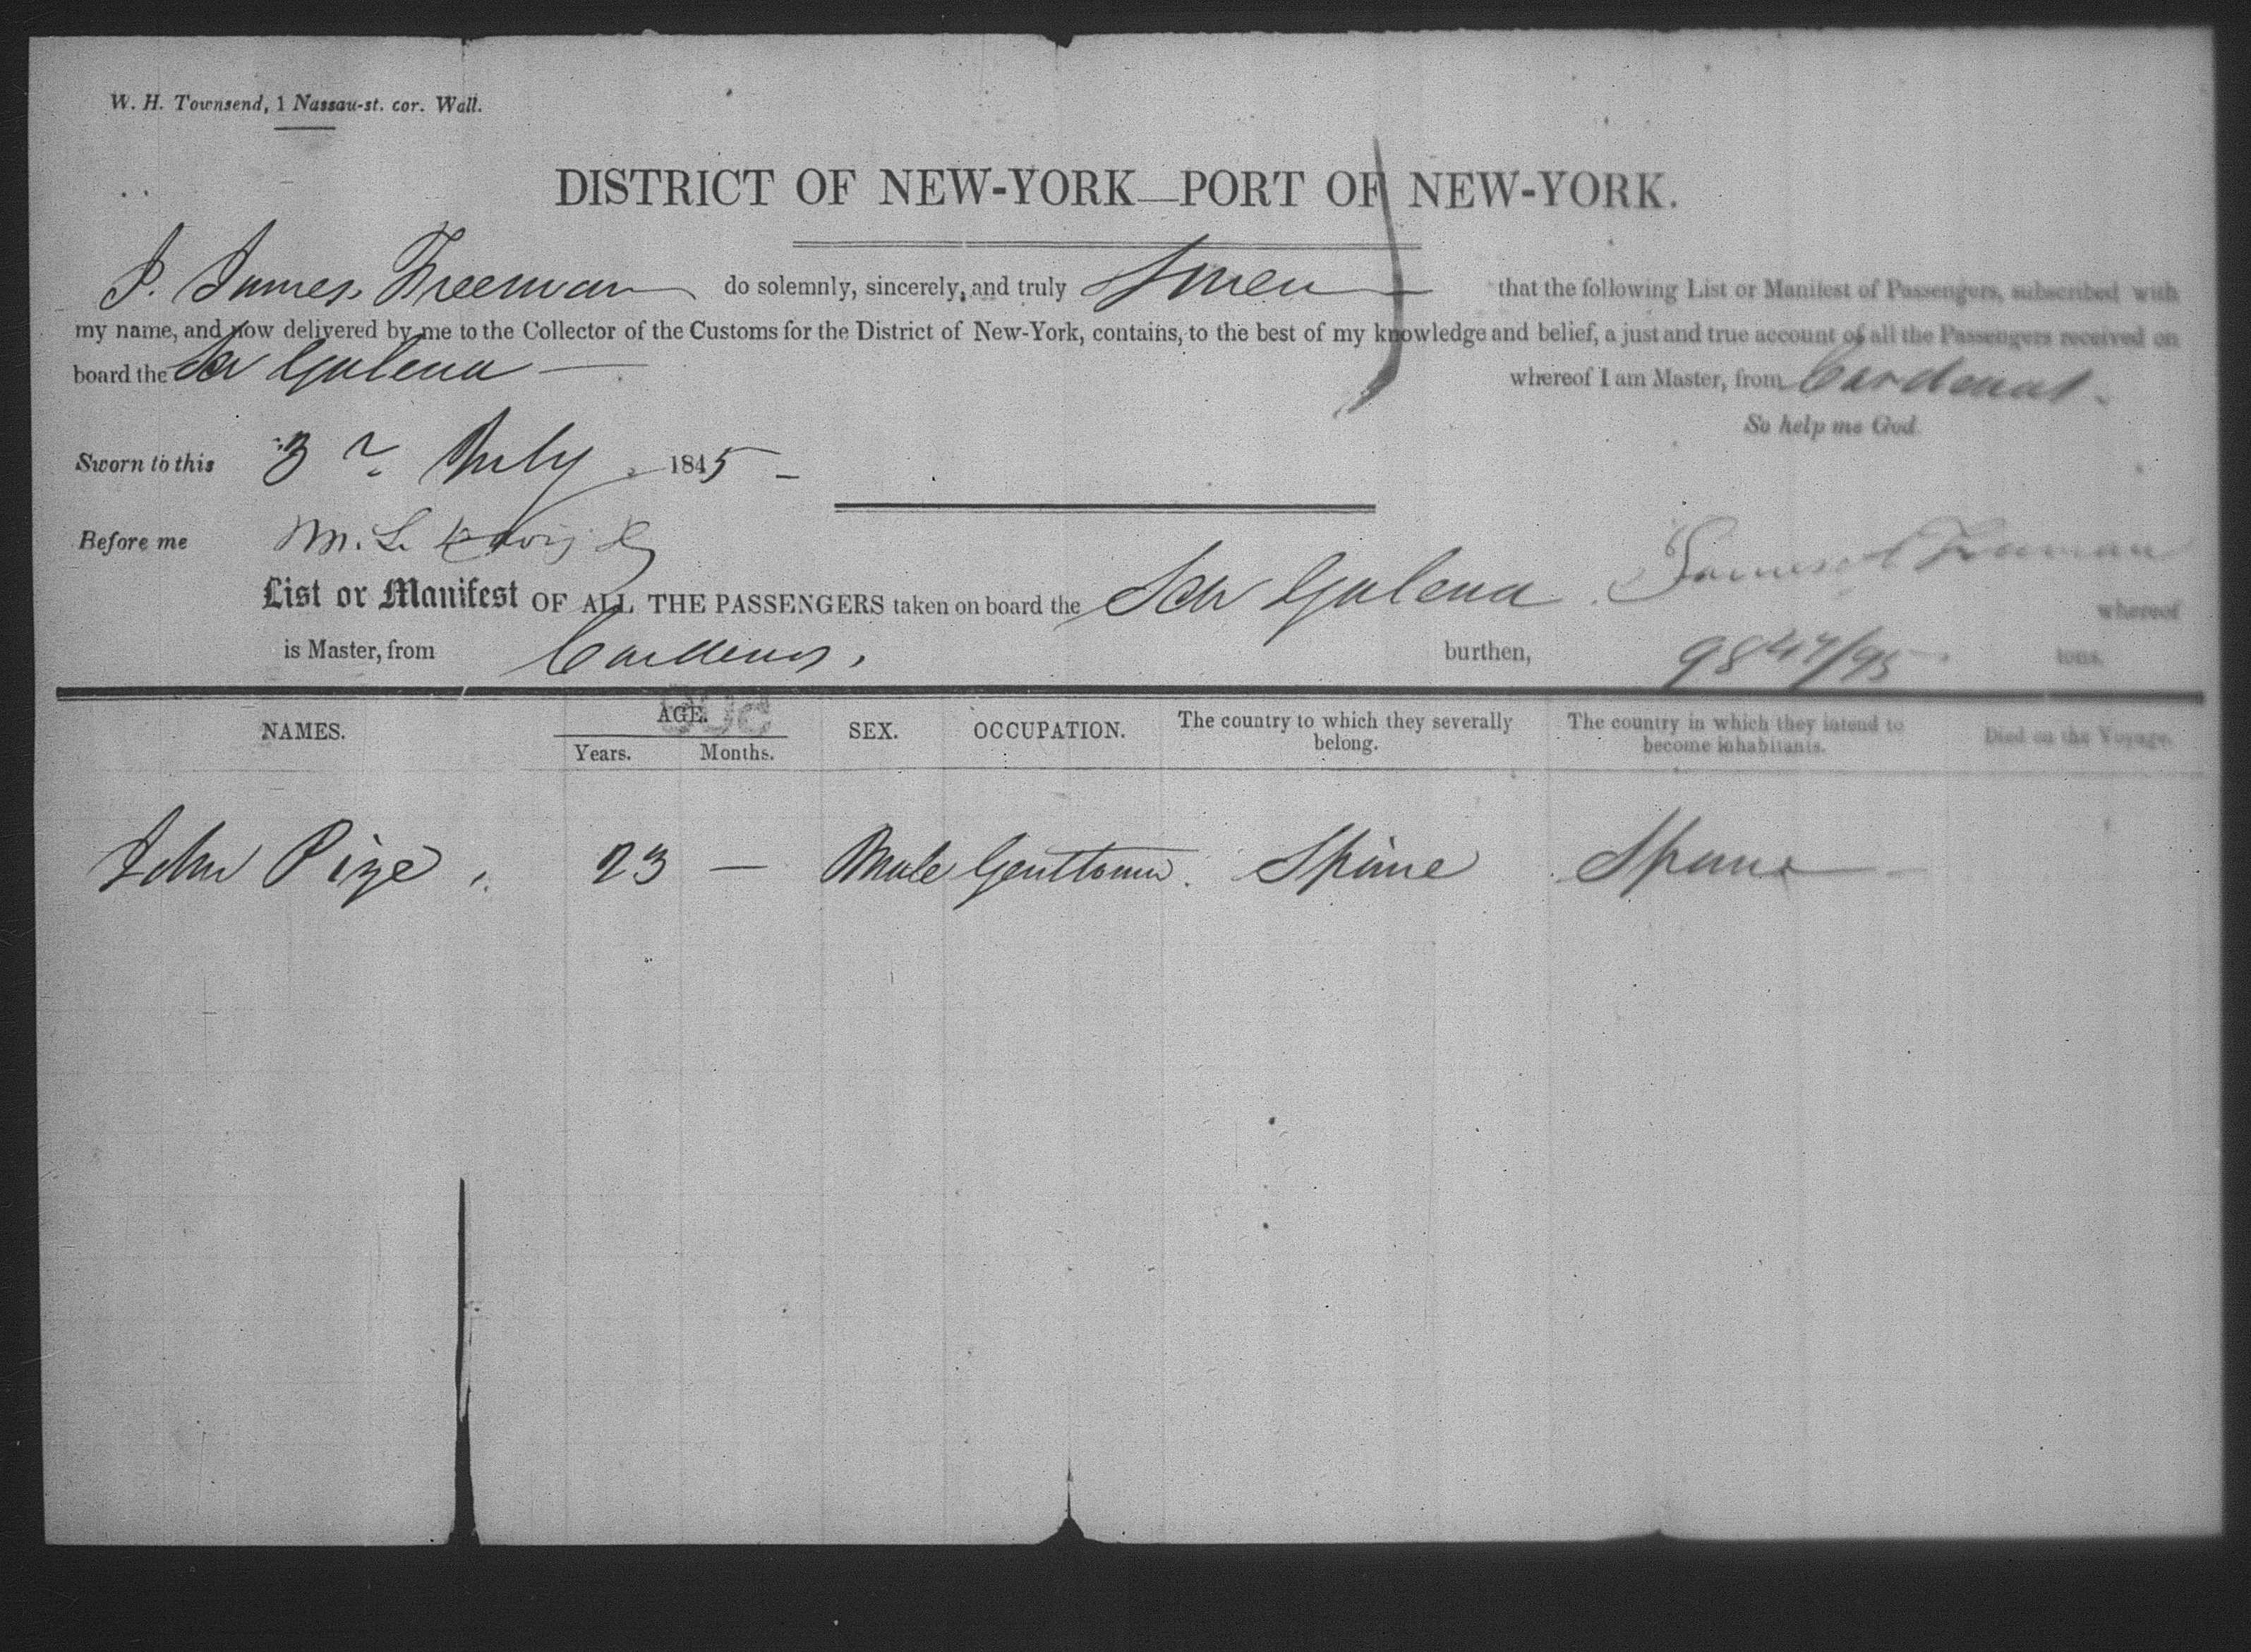 W. H. Townsend, 1 Nassau-st. cor. Wall.
DISTRICT OF NEW-YORK—PORT OF NEW-YORK.
I. James Freeman do solemnly, sincerely, and truly that the following List or Manifest of Passengers, subscribed with
my name, and now delivered by me to the Collector of the Customs for the District of New-York, contains, to the best of my knowledge and belief, a just and true account of all the Passengers received on
board the Schr Galena whereof I am Master, from Cardenas.
So help me God.
Sworn to this 3 July 1845
Before me M. L.
List or Manifest OF ALL THE PASSENGERS taken on board the Schr Galena James Freeman whereof
is Master, from Cardenas, burthen, 98 47/95 tons.
NAMES. AGE. SEX. OCCUPATION. The country to which they severally belong. The country in which they intend to become inhabitants. Died on the Voyage.
Years. Months.
John 23 — Male Spaine Spane